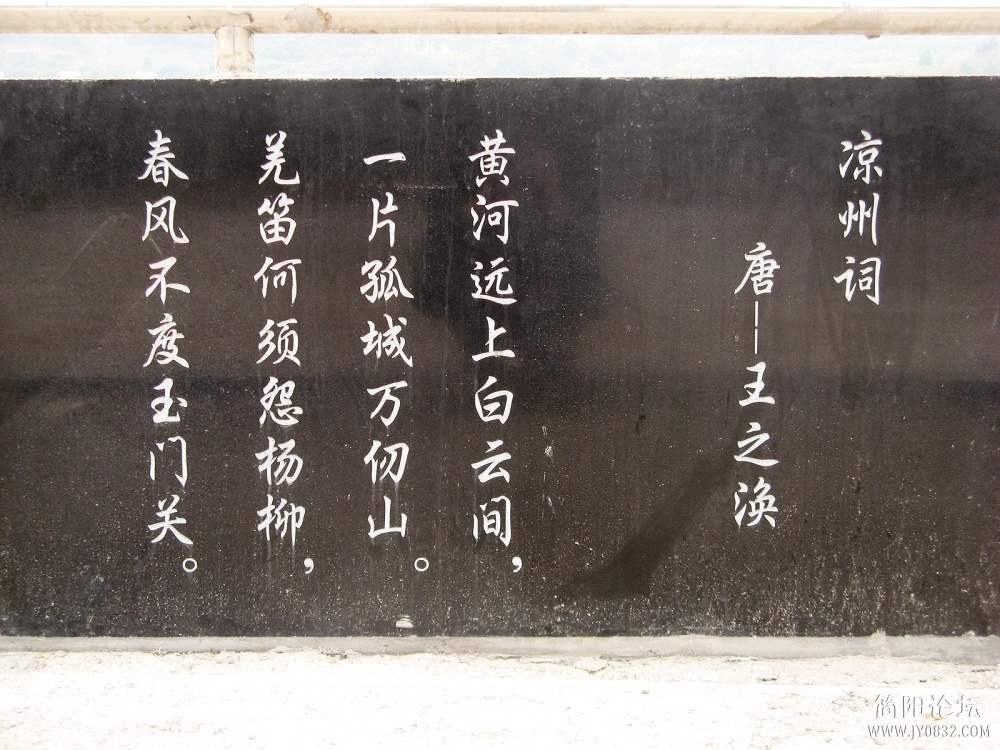 凉州词
唐——王之涣
黄河远上白云间，
一片孤城万仞山。
羌笛何须怨杨柳，
春风不度玉门关。
简阳论坛
WWW.JY0832.COM